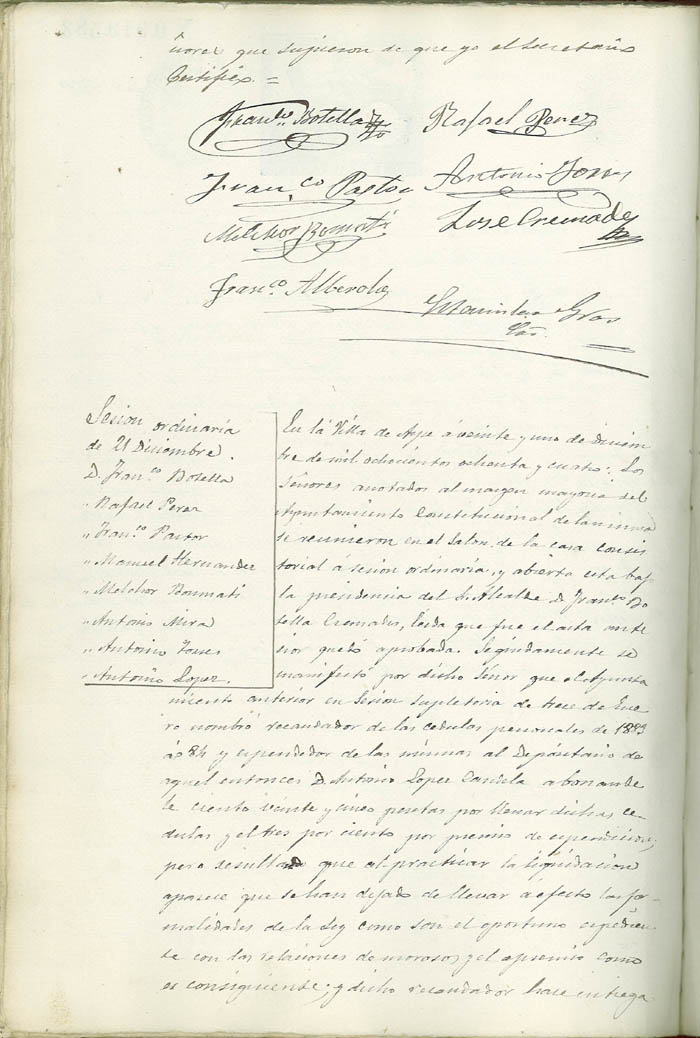 ñores que supieron de que yo el Secretario
Certifico. =
Franco. Botella
Rafael Perez
Franco Pastor
Antonio Torres
Melchor Bonmatí
Jose Cremades
Franco. Alberola
Estanislao Gras
Srio.
Sesion ordinaria
de 21 Diciembre.
D. Franco. Botella
" Rafael Perez
" Franco. Pastor
" Manuel Hernandez
" Melchor Bonmati
" Antonio Mira
" Antonio Torres
" Antonio Lopez.
En la Villa de Aspe á veinte y uno de Diciem
bre de mil ochocientos ochenta y cuatro: Los
Señores anotados al margen mayoria del
Ayuntamiento Constitucional de la misma
se reunieron en el Salon de la casa consis
torial á sesion ordinaria, y abierta esta bajo
la presidencia del Sr. Alcalde D. Franco. Bo
tella Cremades, leida que fue el acta ante
rior quedó aprobada. Seguidamente se
manifestó por dicho Señor que el Ayunta
miento anterior en Sesion supletoria de trece de Ene
ro nombró recaudador de las cedulas personales de 1883
á 84 y espendedor de las mismas al Depositario de
aquel entonces D. Antonio Lopez Candela abonando
le ciento veinte y cinco pesetas por llevar dichas ce
dulas y el tres por ciento por premio de espendicion;
pero resultado que al practicar la liquidacion
aparece que se han dejado de llevar á efecto las for-
malidades de la Ley como son el oportuno espedien
te con las relaciones de morosos y el apremio como
es consiguiente; y dicho recaudador hace entrega